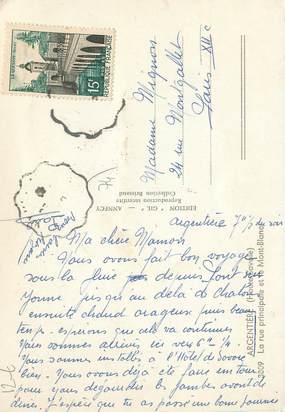 15F
REPUBLIQUE FRANÇAISE
Madame Mignon
24 rue Montgallet
Paris XII e
EDITION "GIL" - ANNECY
Reproduction interdite
Collection
ARGENTIÈRE
3209 La rue principale et le Mont-Blanc
Argentière 7 h du soir
Ma chère Maman
Nous avons fait bon voyage
sous la pluie depuis
Yonne jusqu'au delà de chalon
ensuite ciel
temps. espérons que cela va continuer
Nous sommes arrivés ici vers 6h 1/4.
Nous sommes installés à l'Hôtel de Savoie
bien. Nous avons déjà été faire un tour
pour nous dégourdir les jambes avant de
diner. J'espère que tu as passé une bonne journée